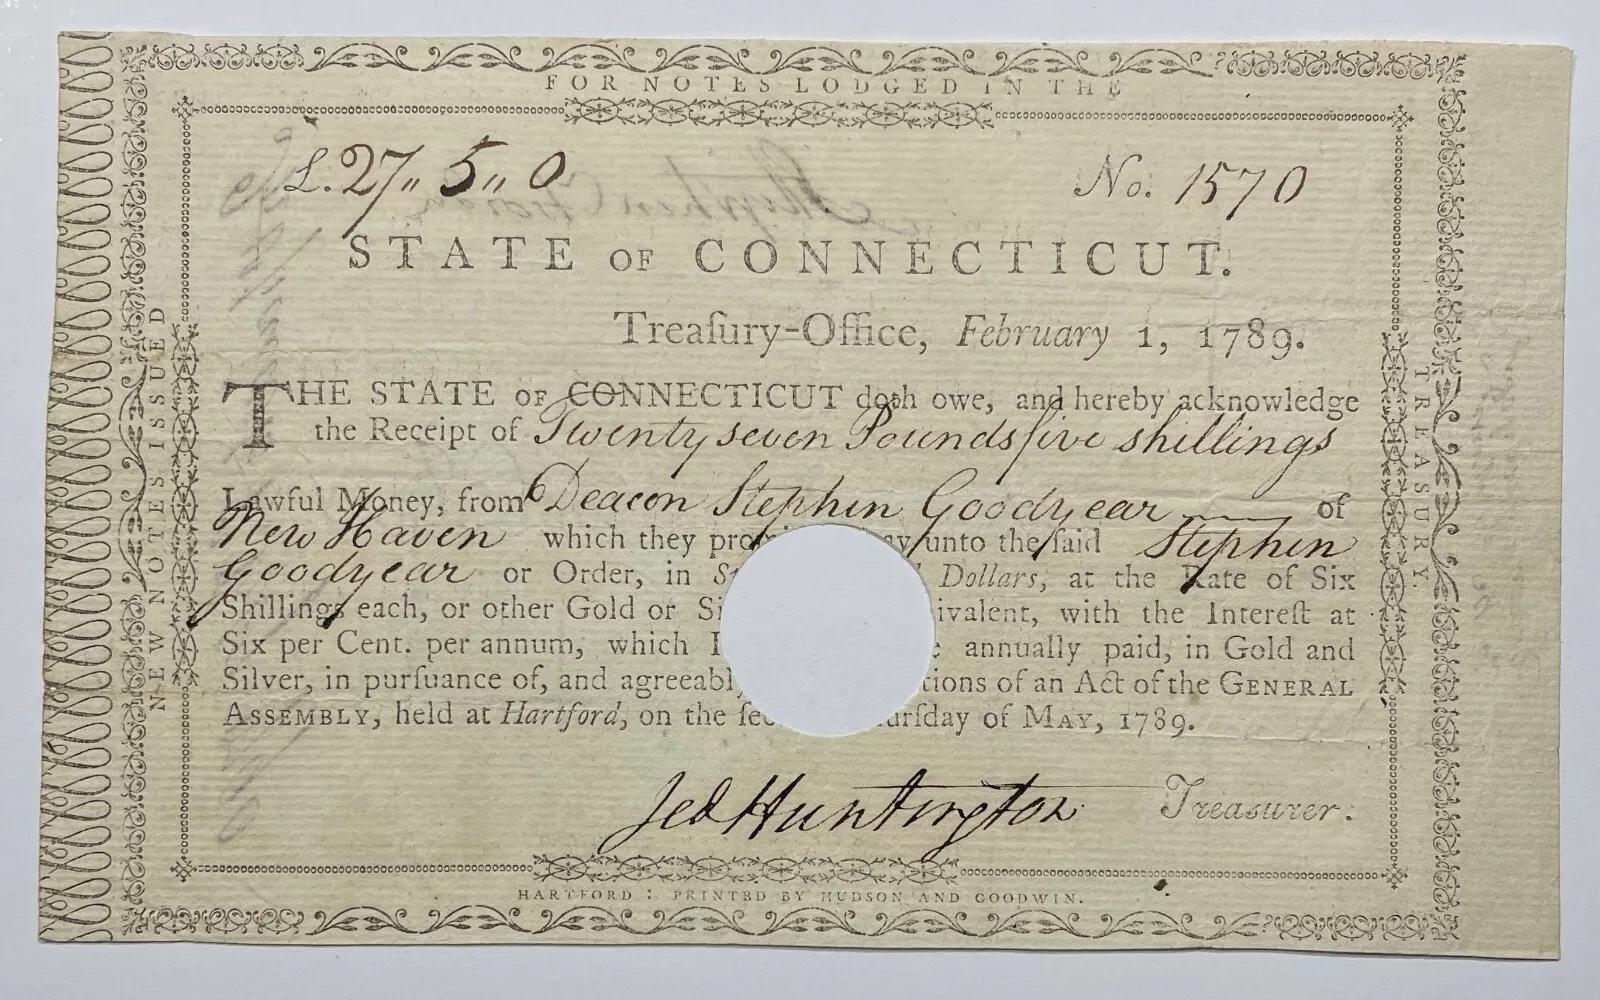 FOR NOTES LODGED IN THE
£. 27,, 5,, 0
No. 1570
STATE OF CONNECTICUT.
Treaſury-Office, February 1, 1789.
THE STATE OF CONNECTICUT doth owe, and hereby acknowledge
the Receipt of Twenty seven Pounds five shillings
Lawful Money, from Deacon Stephen Goodyear of
New Haven which they ay unto the ſaid Stephen
Goodyear or Order, in Dollars, at the Rate of Six
Shillings each, or other Gold or Si ivalent, with the Intereſt at
Six per Cent. per annum, which annually paid, in Gold and
Silver, in purſuance of, and agreeabl tions of an Act of the GENERAL
ASSEMBLY, held at Hartford, on the ſec urſday of MAY, 1789.
Jed Huntington Treasurer.
HARTFORD: PRINTED BY HUDSON AND GOODWIN.
NEW NOTES ISSUED
TREASURY.